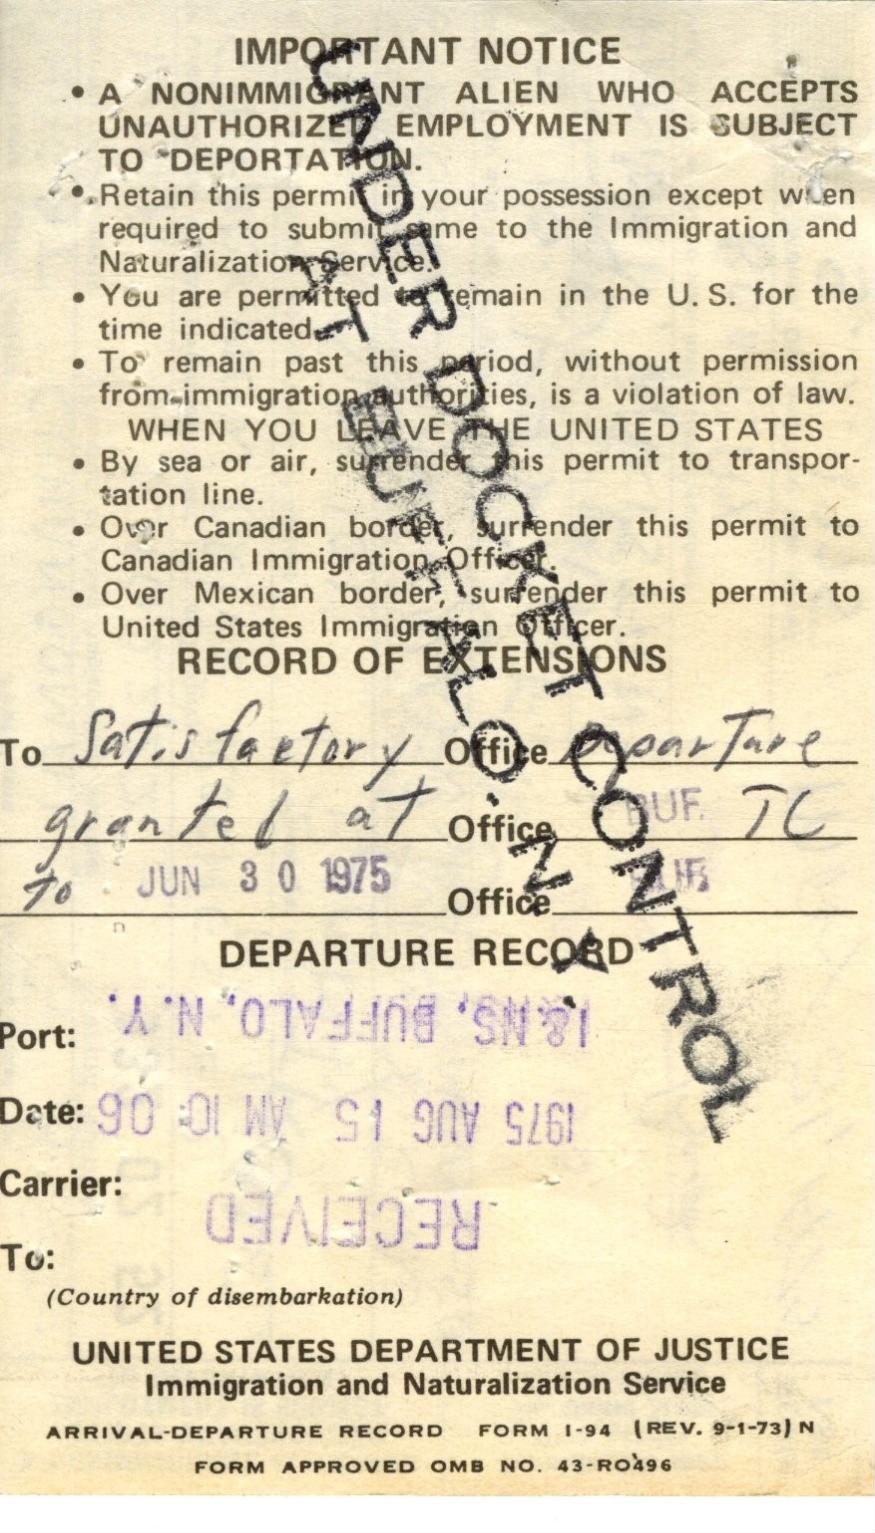 IMPORTANT NOTICE
• A NONIMMIGRANT ALIEN WHO ACCEPTS
UNAUTHORIZED EMPLOYMENT IS SUBJECT
TO DEPORTATION.
• Retain this permit in your possession except when
required to submit same to the Immigration and
Naturalization Service.
• You are permitted to remain in the U. S. for the
time indicated.
• To remain past this period, without permission
from immigration authorities, is a violation of law.
WHEN YOU LEAVE THE UNITED STATES
• By sea or air, surrender this permit to transpor-
tation line.
• Over Canadian border, surrender this permit to
Canadian Immigration Officer.
• Over Mexican border, surrender this permit to
United States Immigration Officer.
UNDER DOCKET CONTROL
AT BUFFALO, N.Y.
RECORD OF EXTENSIONS
To Satisfactory Office Departure
granted at Office BUF. TC
to JUN 30 1975 Office
DEPARTURE RECORD
Port: I&NS, BUFFALO, N.Y.
Date: 1975 AUG 15 AM 10:06
Carrier:
RECEIVED
To:
(Country of disembarkation)
UNITED STATES DEPARTMENT OF JUSTICE
Immigration and Naturalization Service
ARRIVAL-DEPARTURE RECORD FORM I-94 (REV. 9-1-73) N
FORM APPROVED OMB NO. 43-RO496